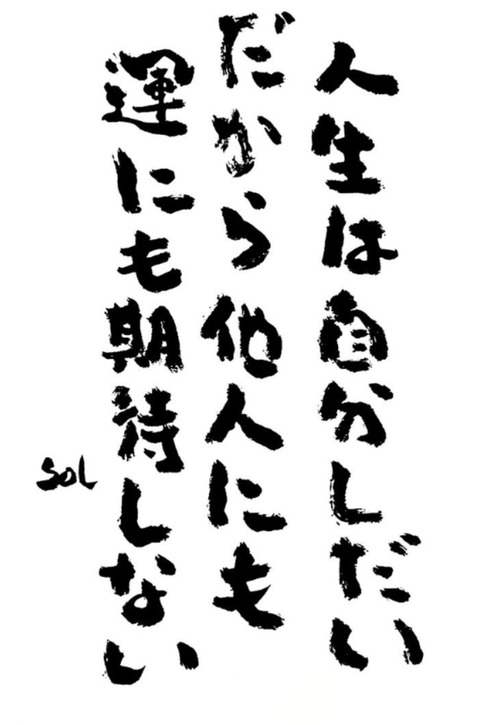 人生は自分しだい
だから他人にも
運にも期待しない
SOL